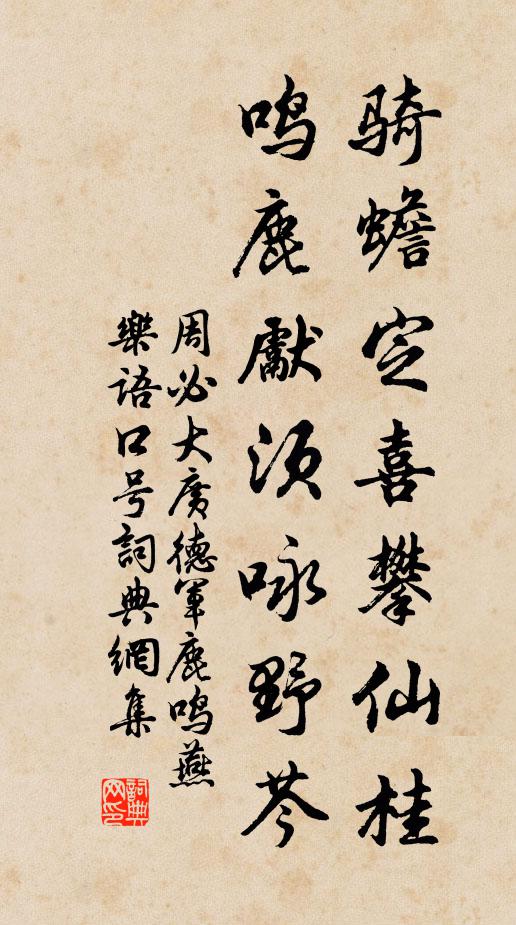 骑蟾定喜攀仙桂
鸣鹿獻须咏野芩
周必大廣德军鹿鸣燕
樂语口号詞典網集
詞典网印